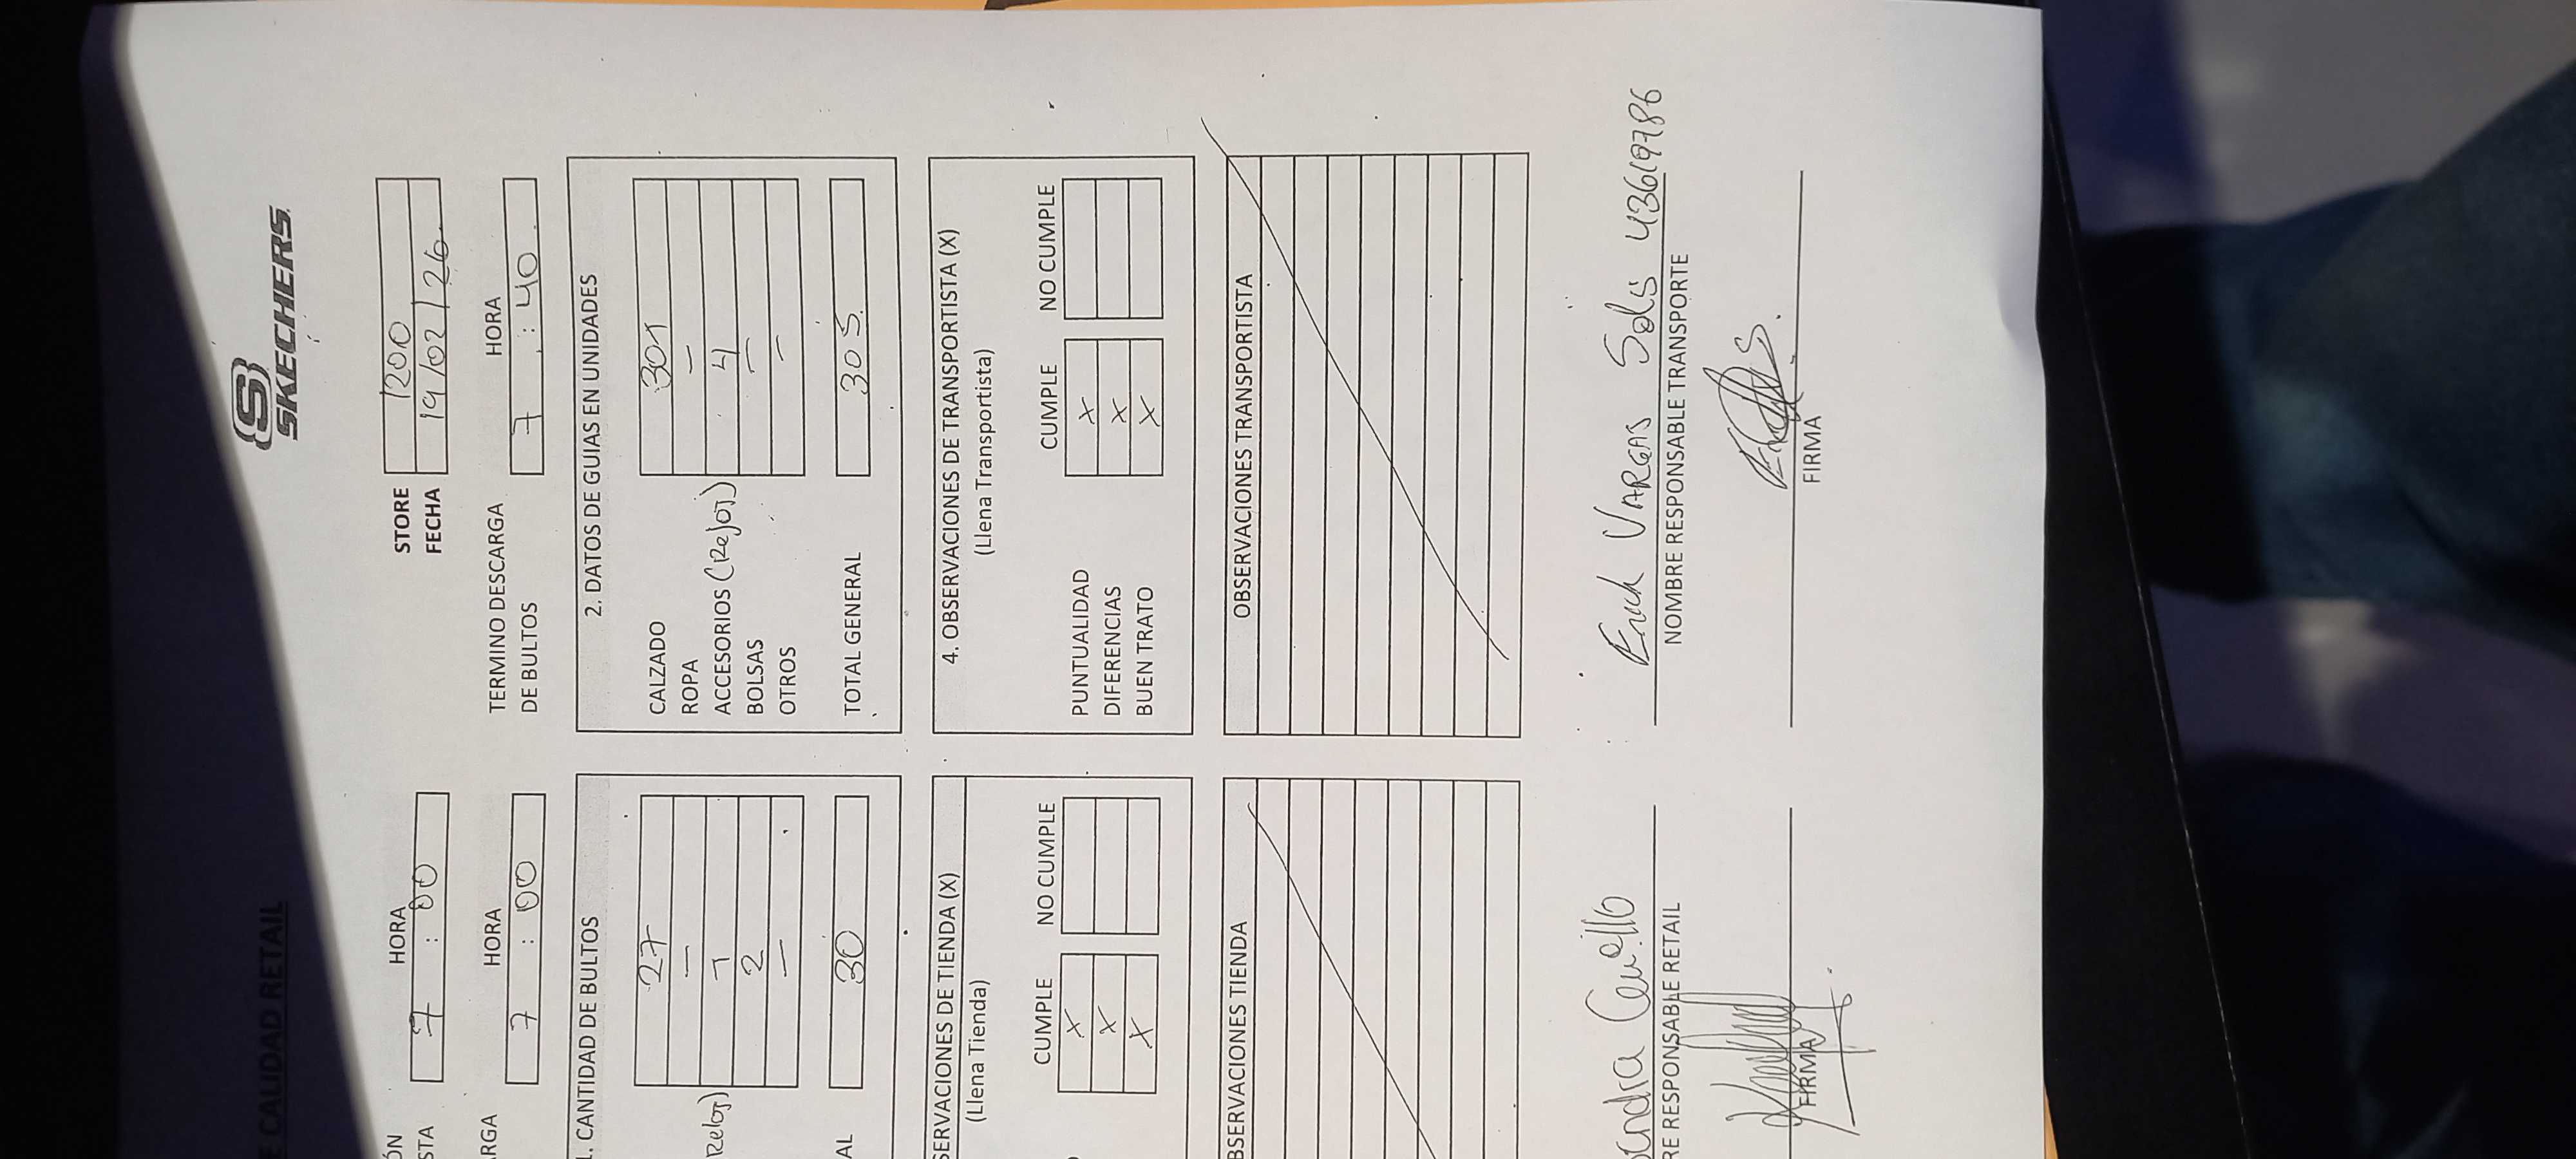 E CALIDAD RETAIL
SKECHERS
ÓN HORA STORE 1200
STA 7 : 00 FECHA 19/02/26
ARGA HORA TERMINO DESCARGA HORA
7 : 00 DE BULTOS 7 : 40
1. CANTIDAD DE BULTOS 2. DATOS DE GUIAS EN UNIDADES
27 CALZADO 301
— ROPA —
Reloj) 1 ACCESORIOS (Reloj) 4
2 BOLSAS —
— OTROS —
AL 30 TOTAL GENERAL 305
SERVACIONES DE TIENDA (X) 4. OBSERVACIONES DE TRANSPORTISTA (X)
(Llena Tienda) (Llena Transportista)
CUMPLE NO CUMPLE CUMPLE NO CUMPLE
X PUNTUALIDAD X
X DIFERENCIAS X
X BUEN TRATO X
BSERVACIONES TIENDA OBSERVACIONES TRANSPORTISTA
Erick VARGAS Solis 43619786
RE RESPONSABLE RETAIL NOMBRE RESPONSABLE TRANSPORTE
FIRMA FIRMA